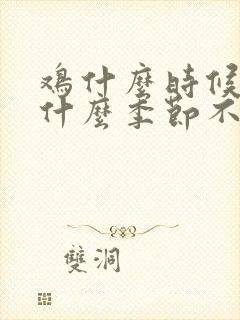 鸡什麼時候
什麼季節不
雙洞